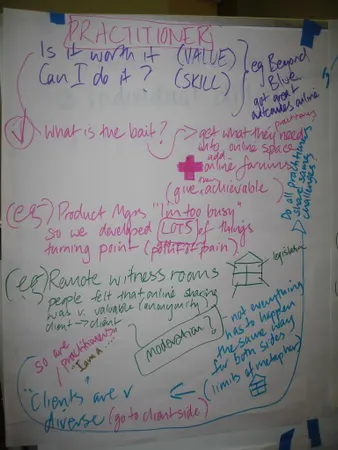 PRACTITIONER
Is it worth it (VALUE)
Can I do it? (SKILL)
eg Beyond
Blue
got great
outcomes online
practitioners
What is the bait?
get what they need
into online space
add
online forums
(give achievable)
(eg) Product Mgrs "I'm too busy"
so we developed LOTS of things
turning point (pain)
Do all practitioners
share same
challenges?
(eg) Remote witness rooms
people felt that online sharing
was v. valuable (anonymity)
client → client
legislation
Moderation
- not everything
has to happen
the same way
for both sides
(limits of metaphor)
so are
practitioners
I am a ...
"Clients are v
diverse (go to client side)